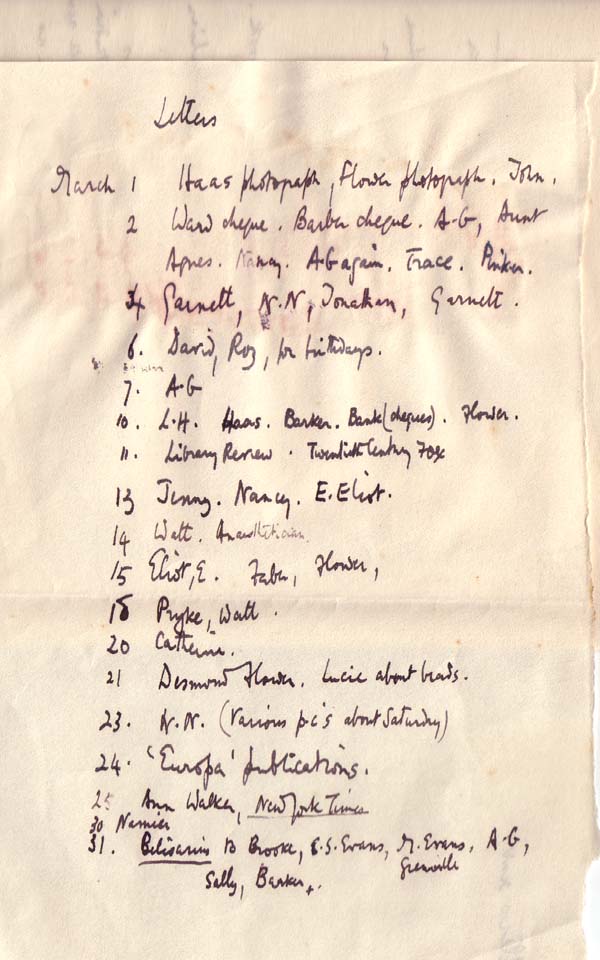 Letters
March 1 Haas photograph, Flower photograph. John.
2 Ward cheque. Barber cheque. A-G, Aunt
Agnes. Nancy. AG again. Trace. Pinker.
34 Garnett, N.N, Jonathan, Garnett.
6. David, Roz, for birthdays.
7. A-G
10. L.H. Haas. Barker. Bank (cheques). Flower.
11. Library Review. Twentieth Century Fox
13 Jenny. Nancy. E. Eliot.
14 Watt. Anaesthetician.
15 Eliot, E. Faber, Flower,
18 Pryke, Watt.
20 Catherine.
21 Desmond Flower. Lucie about beads.
23. N.N. (Various p.c's about Saturday)
24. 'Europa' publications.
25 Ann Walker, New York Times
30 Namier
31. Belisarius to Brooke, E.S. Evans, M. Evans, A-G,
Grenville
Sally, Barker,